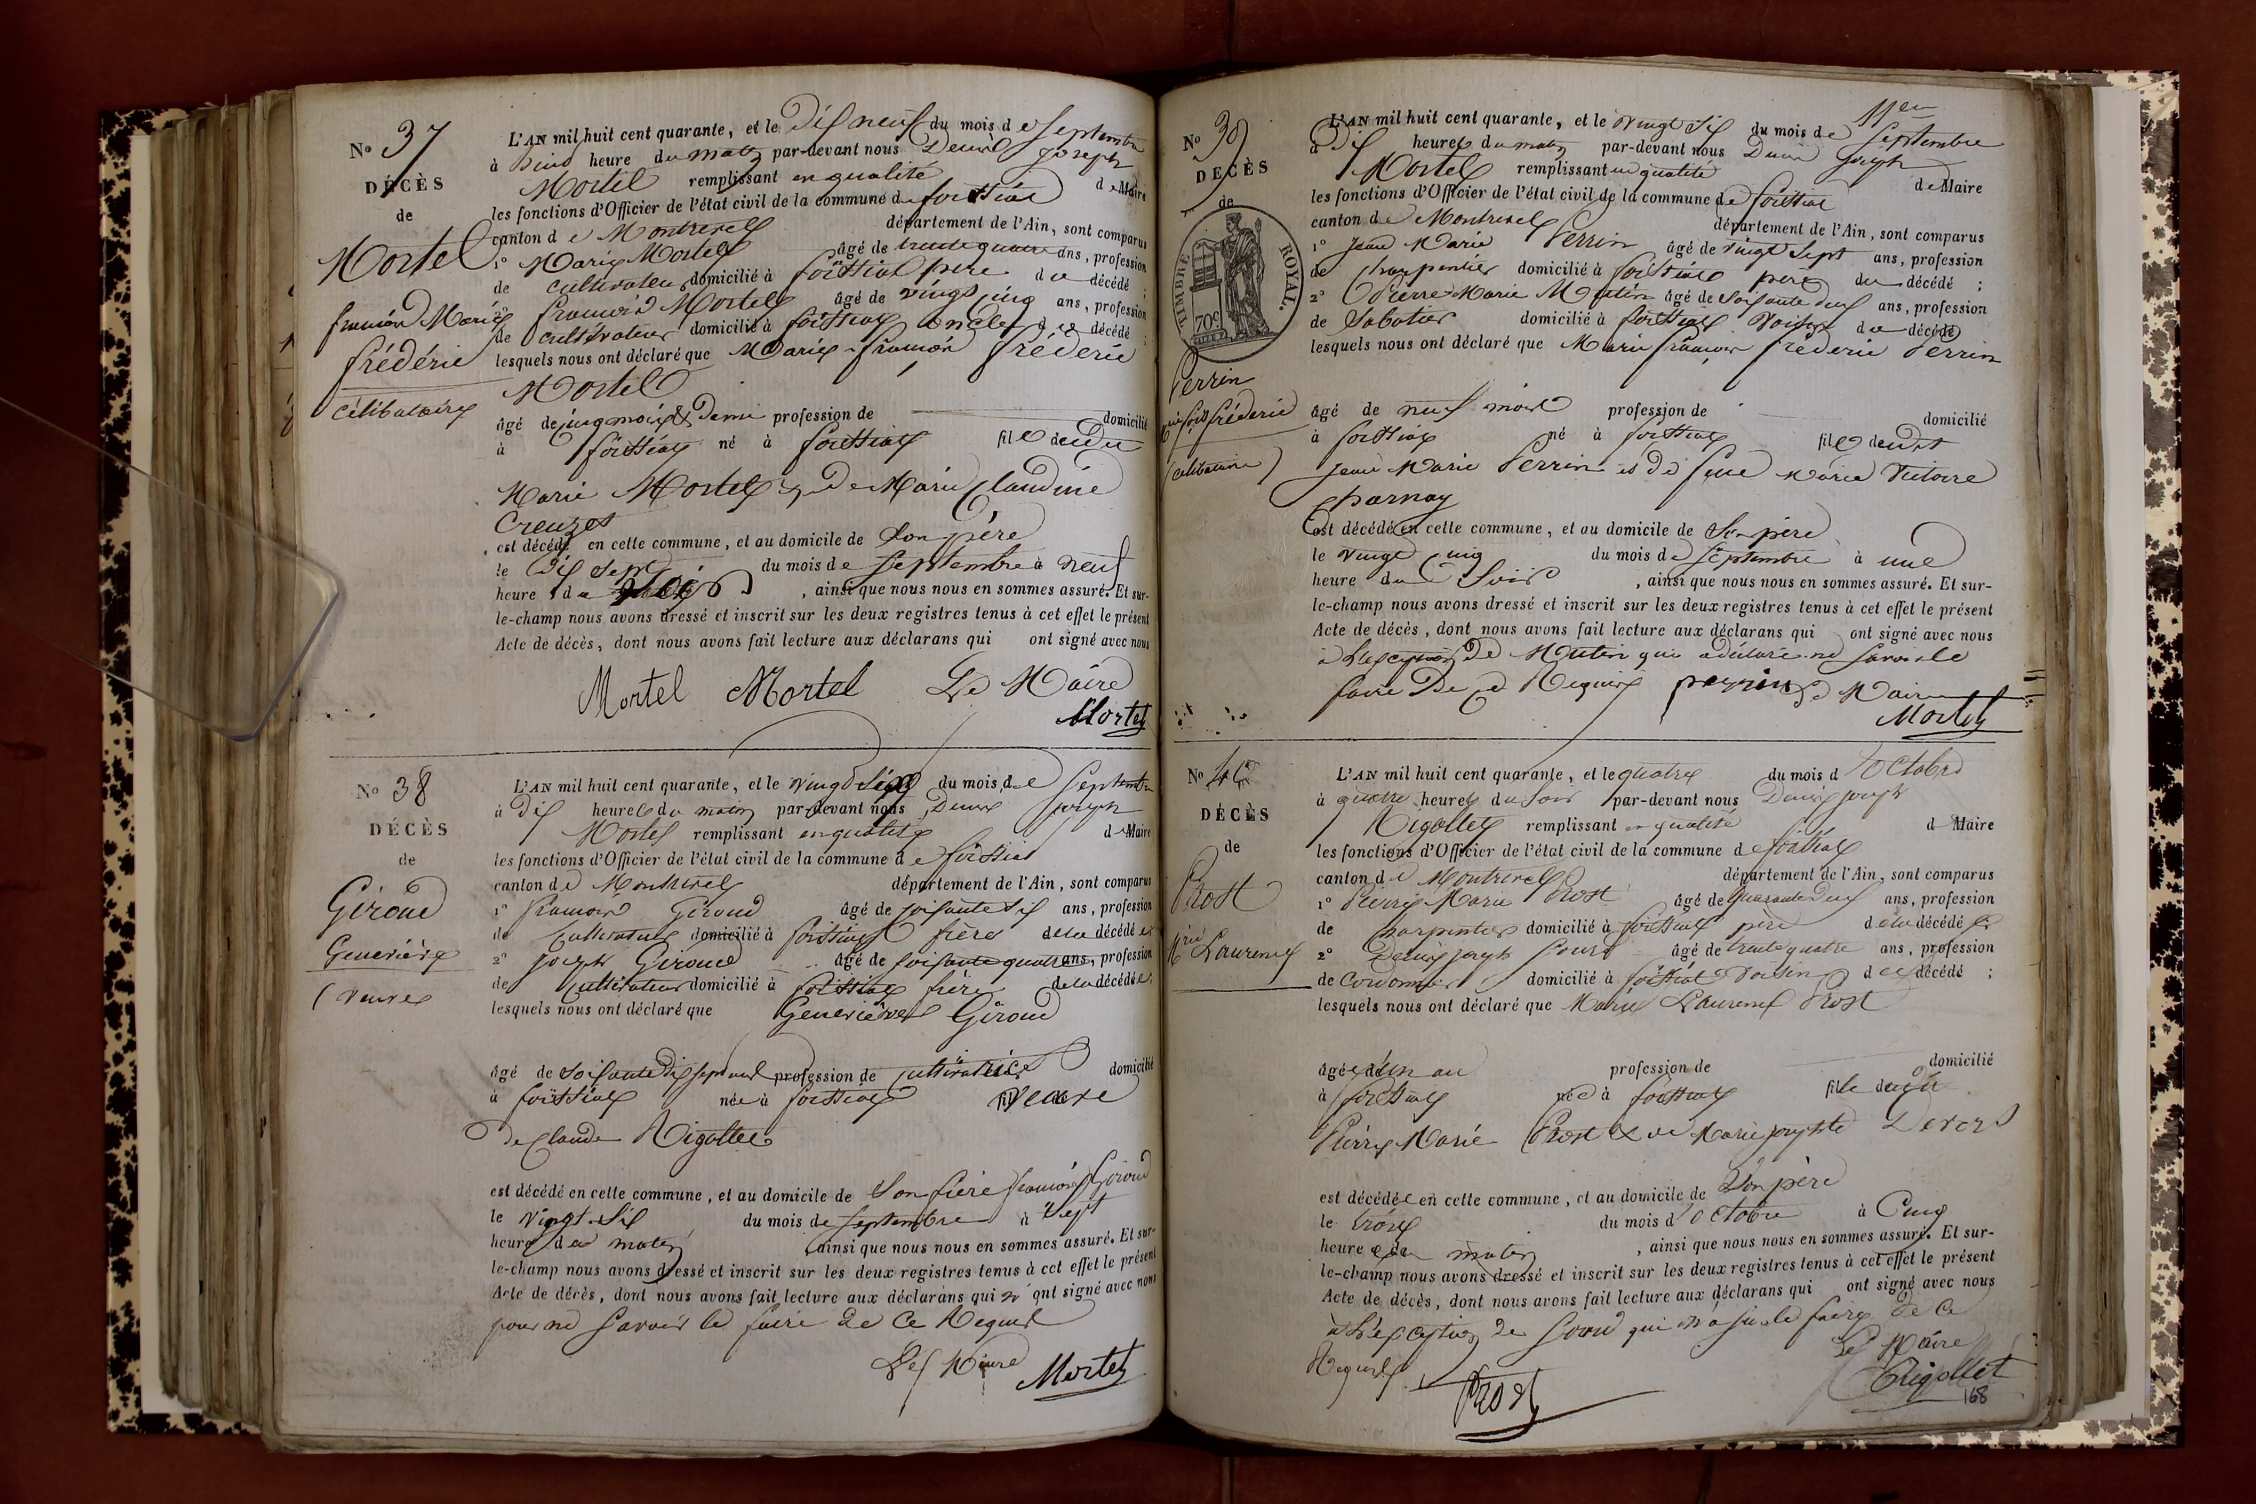 No 37
DÉCÈS
de
Mortel
françois Marie
frédéric
célibataire
L'AN mil huit cent quarante, et le dix neuf du mois de Septembre
à heure du matin par-devant nous Denis Joseph
Mortel remplissant en qualité de Maire
les fonctions d'Officier de l'état civil de la commune de foissiat
canton de Montrevel département de l'Ain, sont comparus
1° Marie Mortel âgé de trente quatre ans, profession
de cultivateur domicilié à foissiat père du décédé ;
2° françois Mortel âgé de vingt cinq ans, profession
de cultivateur domicilié à foissiat oncle du décédé ;
lesquels nous ont déclaré que Marie françois frédéric
Mortel
âgé de cinq mois & demi profession de domicilié
à foissiat né à foissiat fils dudit
Marie Mortel & de Marie Claudine
Creuzet
est décédé en cette commune, et au domicile de son père
le dix sept du mois de Septembre à neuf
heure du soir , ainsi que nous nous en sommes assuré. Et sur-
le-champ nous avons dressé et inscrit sur les deux registres tenus à cet effet le présent
Acte de décès, dont nous avons fait lecture aux déclarans qui ont signé avec nous
Mortel Mortel Le Maire
Mortel
No 38
DÉCÈS
de
Giroud
Geneviève
veuve
L'AN mil huit cent quarante, et le vingt six du mois de Septembre
à dix heures du matin par-devant nous Denis Joseph
Mortel remplissant en qualité de Maire
les fonctions d'Officier de l'état civil de la commune de foissiat
canton de Montrevel département de l'Ain, sont comparus
1° françois Giroud âgé de soixante six ans, profession
de cultivateur domicilié à foissiat frère de la décédée
2° Joseph Giroud âgé de soixante quatre ans, profession
de cultivateur domicilié à foissiat frère de la décédée ;
lesquels nous ont déclaré que Geneviève Giroud
âgé de soixante dix sept ans profession de cultivatrice domicilié
à foissiat née à foissiat veuve
de Claude Rigollet
est décédé en cette commune, et au domicile de Son frère françois Giroud
le vingt six du mois de septembre à sept
heure du matin ainsi que nous nous en sommes assuré. Et sur-
le-champ nous avons dressé et inscrit sur les deux registres tenus à cet effet le présent
Acte de décès, dont nous avons fait lecture aux déclarans qui n'ont signé avec nous
pour ne savoir le faire de ce Requis
Le Maire Mortel
11
No 39
DÉCÈS
de
TIMBRE ROYAL.
70c
Perrin
frédéric
célibataire
L'AN mil huit cent quarante, et le vingt six du mois de Septembre
à dix heures du matin par-devant nous Denis Joseph
Mortel remplissant en qualité de Maire
les fonctions d'Officier de l'état civil de la commune de foissiat
canton de Montrevel département de l'Ain, sont comparus
1° Jean Marie Perrin âgé de vingt Sept ans, profession
de charpentier domicilié à foissiat père du décédé ;
2° Pierre Marie Mutin âgé de soixante deux ans, profession
de Sabotier domicilié à foissiat voisin du décédé
lesquels nous ont déclaré que Marie françois frédéric Perrin
âgé de neuf mois profession de domicilié
à foissiat né à foissiat fils dudit
Jean Marie Perrin et de feue Marie Victoire
Charnay
est décédé en cette commune, et au domicile de Son père
le vingt cinq du mois de Septembre à une
heure du Soir , ainsi que nous nous en sommes assuré. Et sur-
le-champ nous avons dressé et inscrit sur les deux registres tenus à cet effet le présent
Acte de décès, dont nous avons fait lecture aux déclarans qui ont signé avec nous
à l'exception de Mutin qui a déclaré ne savoir le
faire De ce Requis perrin Le Maire
Mortel
No 40
DÉCÈS
de
Prost
Mrie Laurence
L'AN mil huit cent quarante, et le quatre du mois d'Octobre
à quatre heures du Soir par-devant nous Denis Joseph
Rigollet remplissant en qualité de Maire
les fonctions d'Officier de l'état civil de la commune de foissiat
canton de Montrevel département de l'Ain, sont comparus
1° Pierre Marie Prost âgé de quarante deux ans, profession
de charpentier domicilié à foissiat père de la décédée
2° Denis Joseph âgé de trente quatre ans, profession
de cordonnier domicilié à foissiat voisin de décédé ;
lesquels nous ont déclaré que Marie Laurence Prost
âgée d'un an profession de domicilié
à foissiat née à foissiat fille dudit
Pierre Marie Prost & de Marie Josephte Devers
est décédée en cette commune, et au domicile de Son père
le trois du mois d'octobre à Cinq
heure du matin , ainsi que nous nous en sommes assuré. Et sur-
le-champ nous avons dressé et inscrit sur les deux registres tenus à cet effet le présent
Acte de décès, dont nous avons fait lecture aux déclarans qui ont signé avec nous
à l'exception de qui n'a su le faire de ce
Requis Le Maire
Prost Rigollet
168